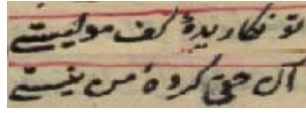 تو نگاریدهٔ کف مولیستی
آن حقی کردهٔ من نیستی